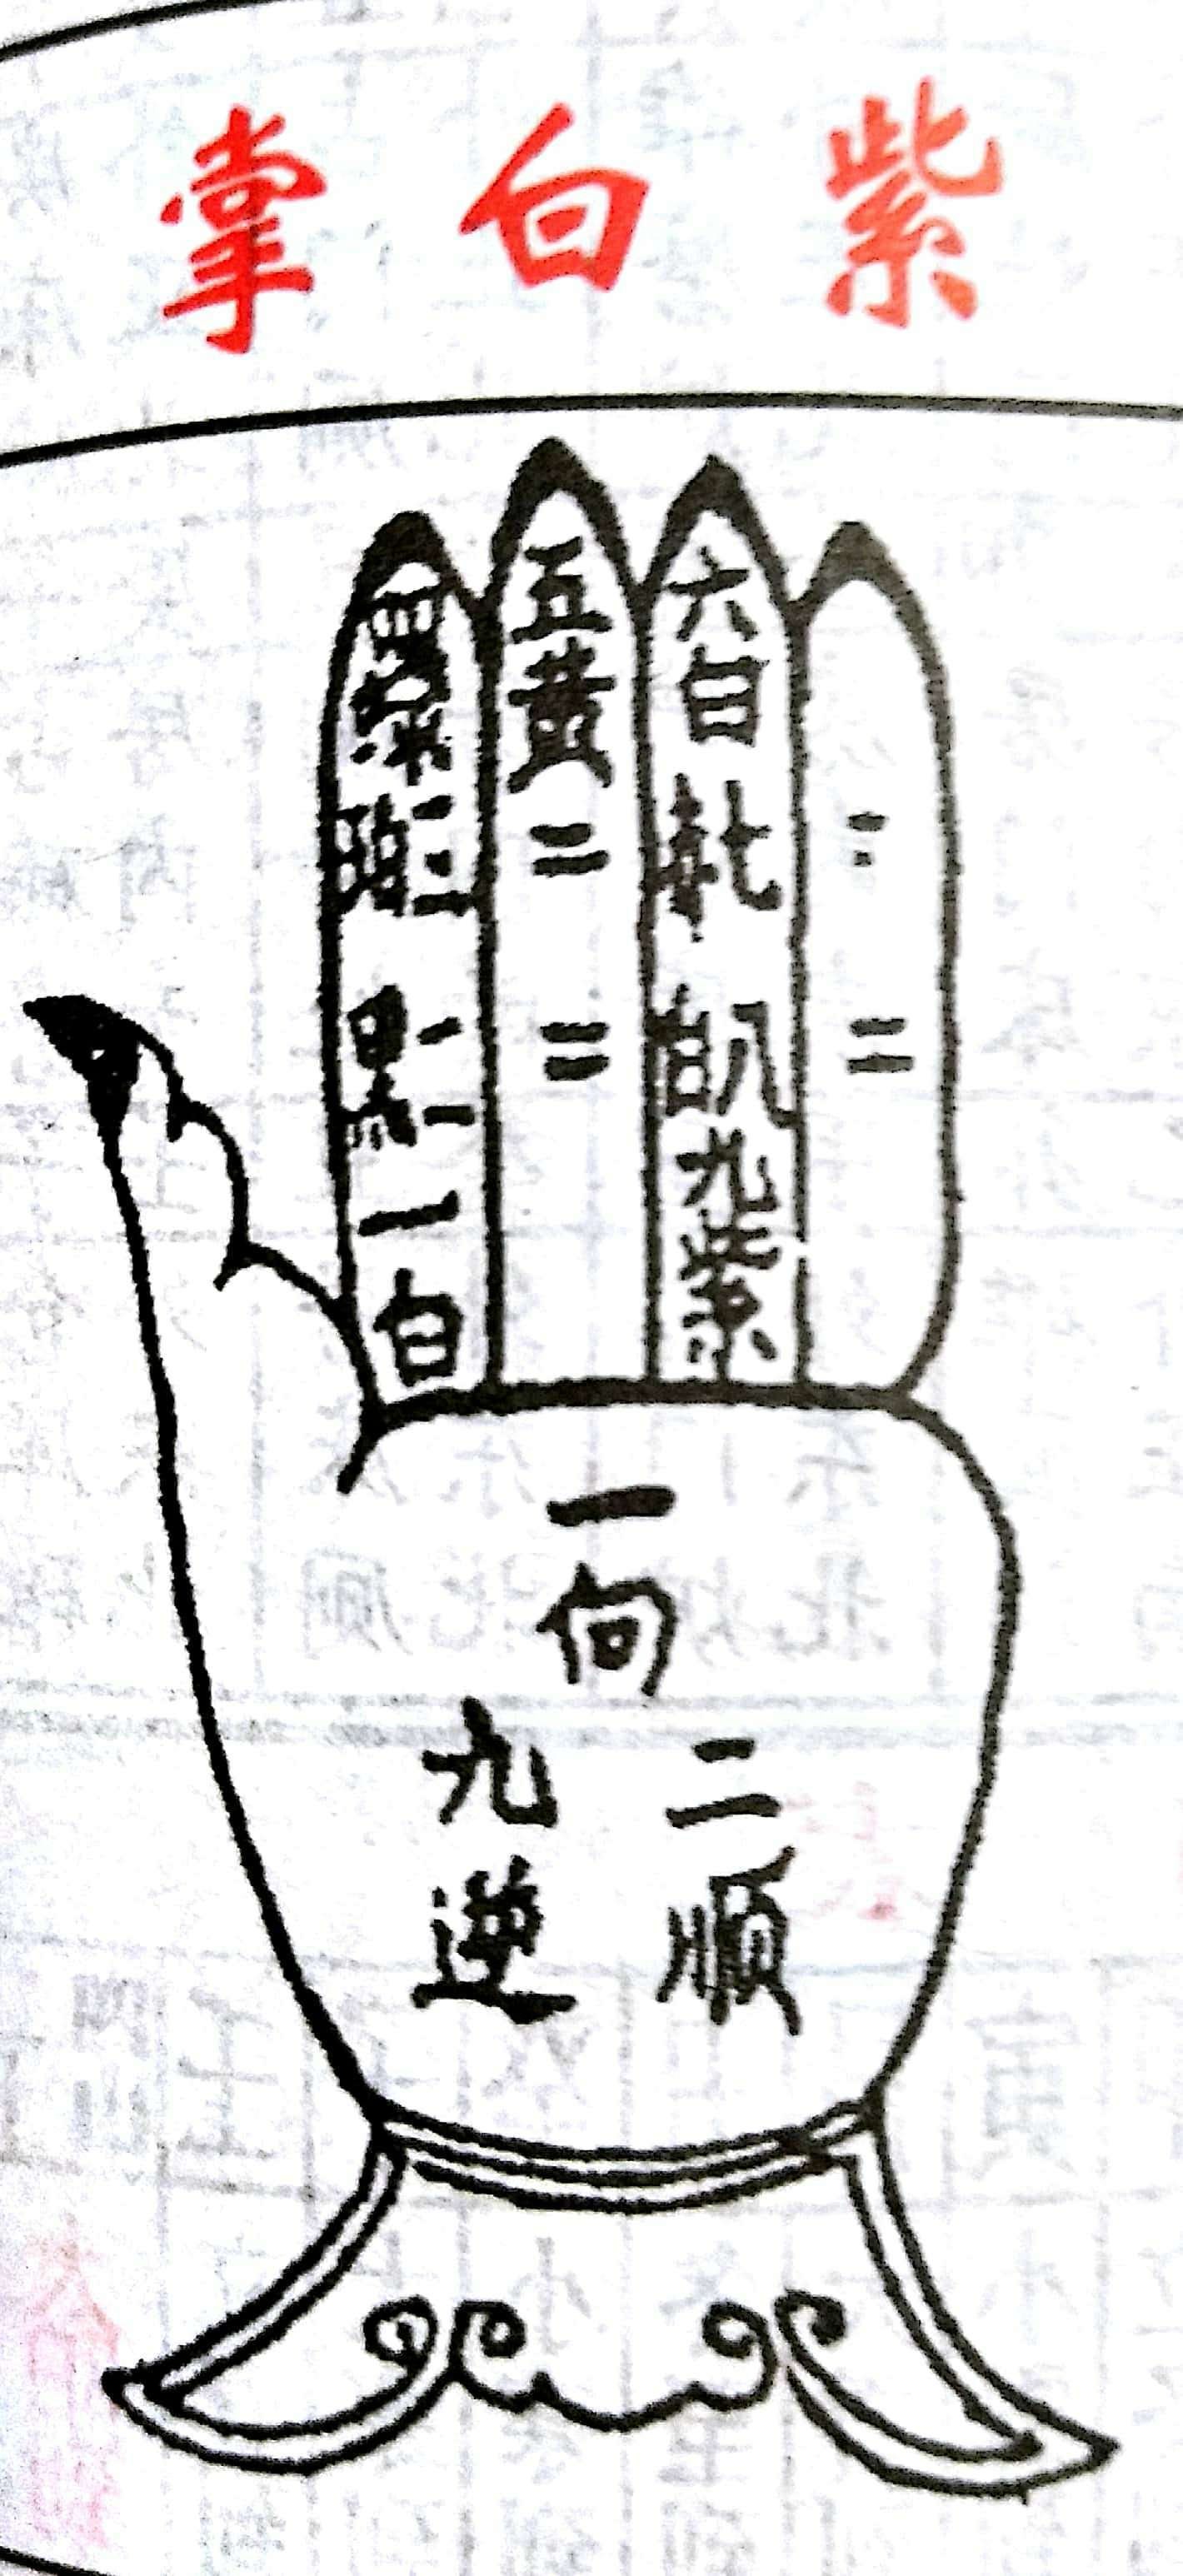 紫白掌
四綠
三碧
二黑
一白
五黃
二
二
六白
七赤
八白
九紫
二
二
一向
二順
九逆